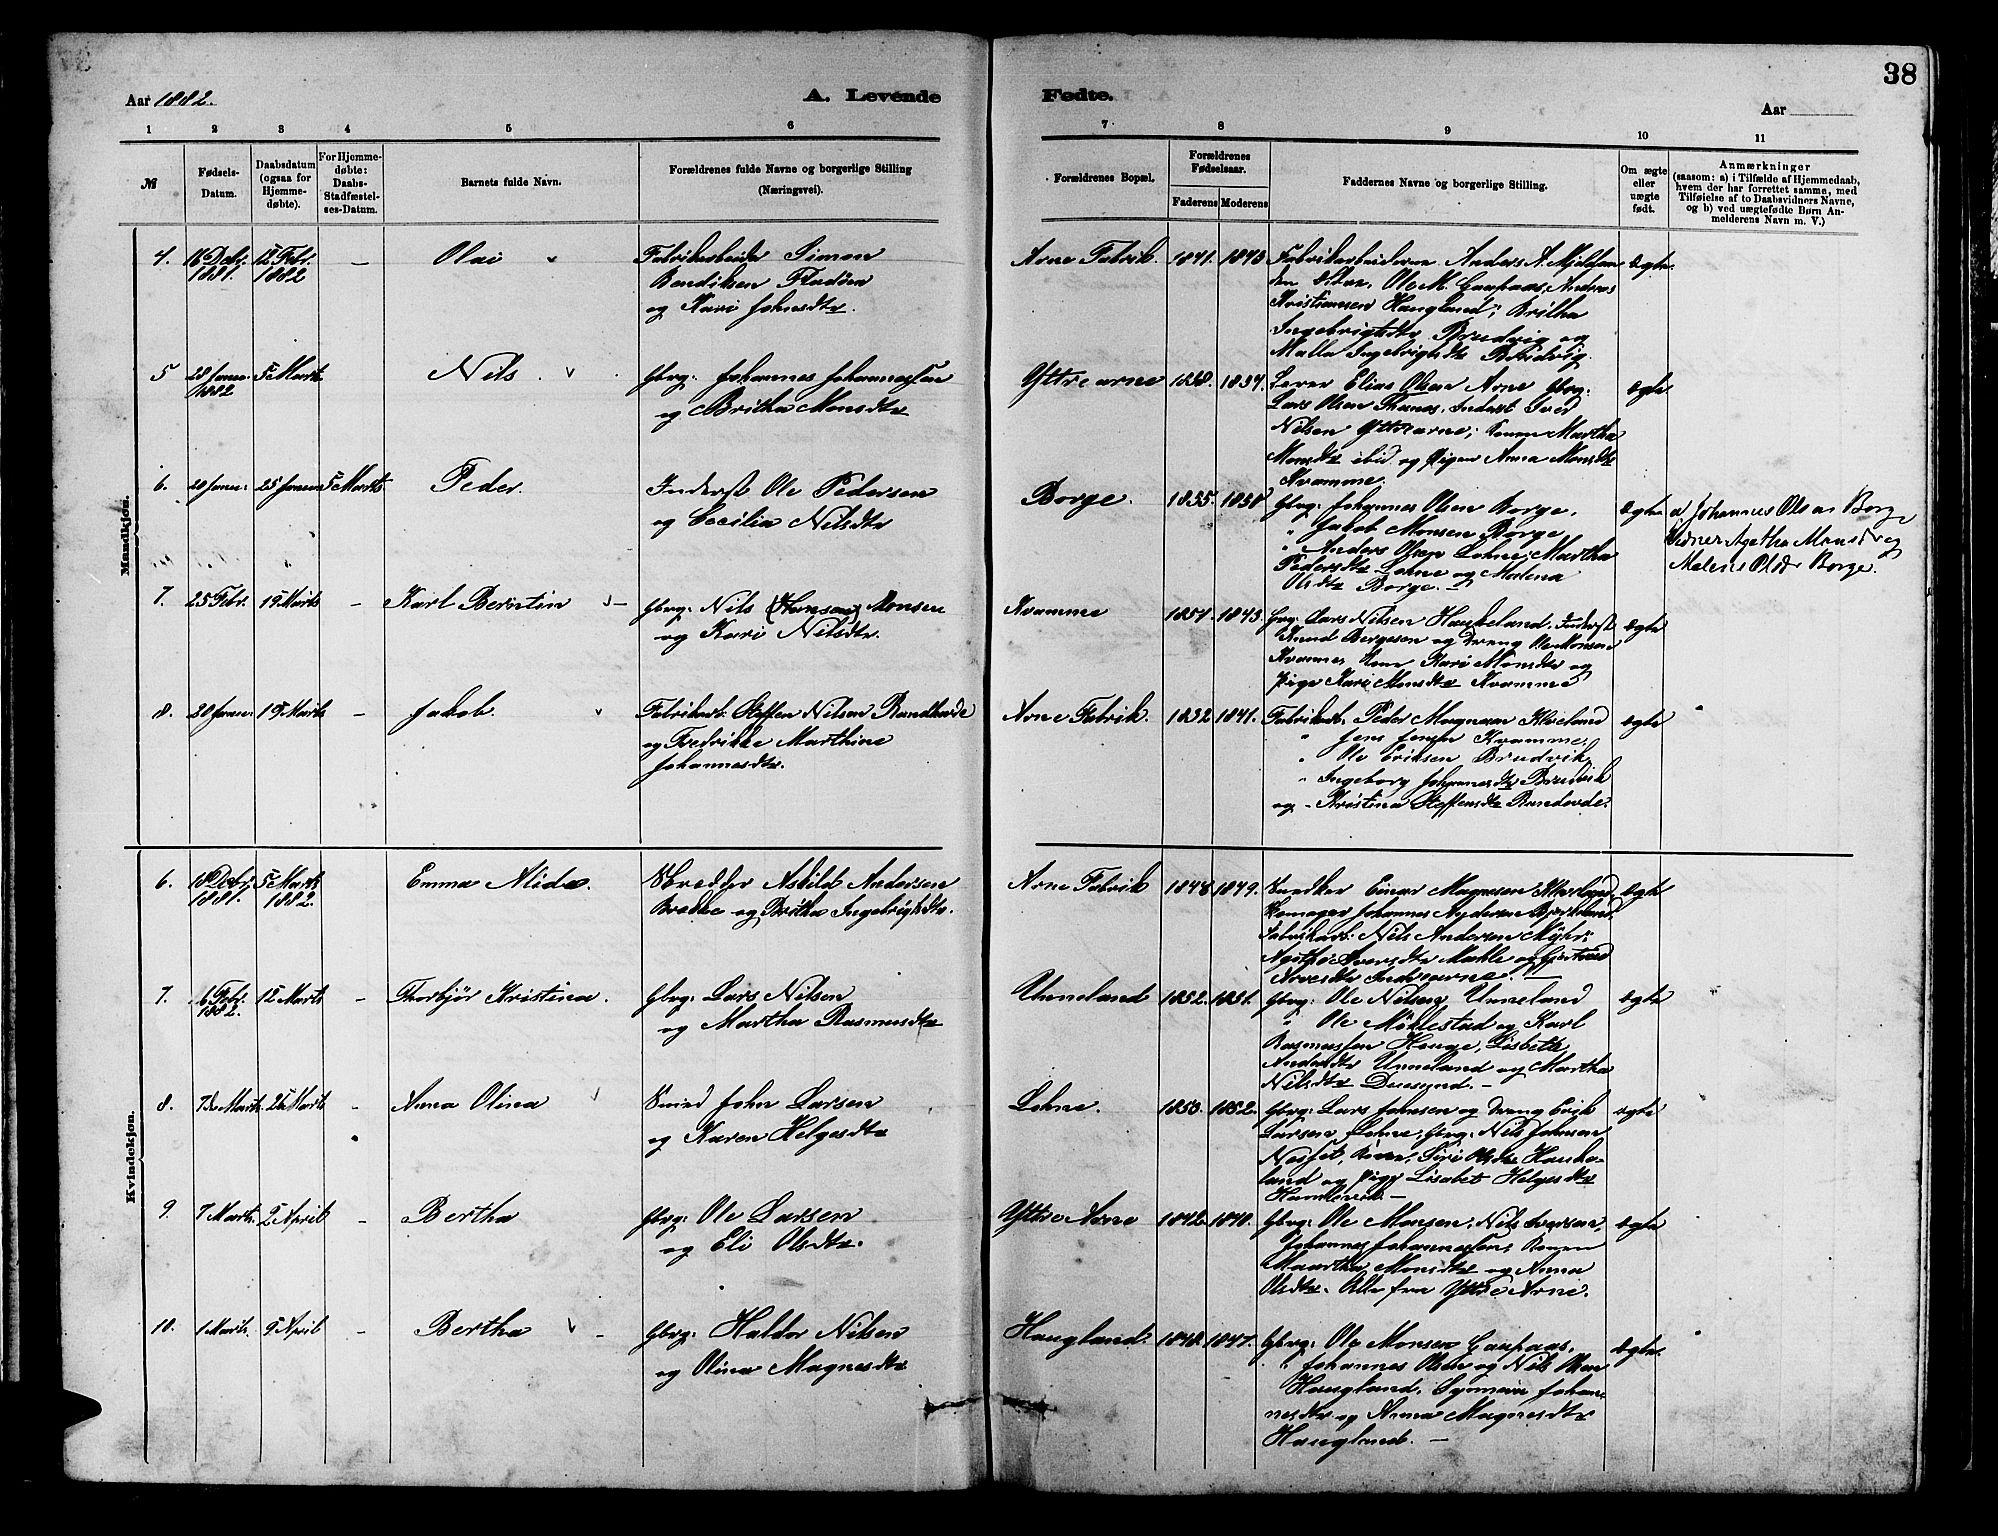 38
Aar 1882.
A. Levende
Fødte.
Aar
1 2 3 4 5 6
7 8 9 10 11
№
Fødsels-Datum.
Daabsdatum (ogsaa for Hjemmedøbte).
For Hjemmedøbte: Daabs-Stadfæstelses-Datum.
Barnets fulde Navn.
Forældrenes fulde Navne og borgerlige Stilling (Næringsvei).
Forældrenes Bopæl.
Forældrenes Fødselsaar.
Faderens Moderens
Faddernes Navne og borgerlige Stilling.
Om ægte eller uægte født.
Anmærkninger
(saasom: a) i Tilfælde af Hjemmedaab, hvem der har forrettet samme, med Tilføielse af to Daabsvidners Navne, og b) ved uægtefødte Børn Anmelderens Navn m. V.)
Mandkjøn.
4. 16 Debr 1881. 12 Febr. 1882 – Olai
Fabrikarbeider Simon
Bendiksen Fladøen
og Kari Johnsdtr.
Arne Fabrik. 1841. 1843.
Fabrikarbeiderne Anders A. Mjeldheim
Ole M. Gaupaas, Andreas
Kristiansen Haugland; Britha
Ingebrigtsdtr Brudvig og
Malla Ingebrigtsdtr Brudvig.
ægte.
5 28 Januar 1882 5 Marts Nils
Gbrg: Johannes Johannessen
og Britha Monsdtr
Yttre arne 1838. 1834.
Lærer Elias Olsen Arne Gbrg:
Lars Olsen Thunes, Inderst Iver
Nilsen Yttrearne; Konen Martha
Monsdtr ibid og Pigen Anna Monsdtr
Kvamme.
ægte
6. 20 Januar: 25 Januar 5 Marts Peder.
Inderst Ole Pedersen
og Cecilia Nilsdtr
Borge. 1855. 1858
Gbrg: Johannes Olsen Borge,
" Jakob Monsen Borge
" Anders Olsen Lohne; Martha
Pedersdtr Lohne og Malena
Olsdtr Borge.
ægte
a Johannes Olsen Borge
Vidner Agatha Monsdtr og
Malene Olsdtr Borge.
7. 25 Febr. 19 Marts – Karl Berntin
Gbrg: Nils (Hansen) Monsen
og Kari Nilsdtr.
Kvamme 1851. 1843.
Gbrg: Lars Nilsen Haukeland. Inderst
Knud Bergesen og Dreng Ole Monsen
Kvamme, Kone Kari Monsdtr og
Pige Kari Monsdtr Kvamme
ægte
8. 20 Januar. 19 Marts – Jakob.
Fabrikarb: Steffen Nilsen
og Fredrikke Marthine
Johannesdtr.
Arne Fabrik. 1832 1841.
Fabrikarb. Peder Magnesen
" Jens Jensen Kvamme,
" Ole Eriksen Brudvik,
" Ingeborg Johannesdtr Brudvik
og – Kristina Steffensdtr
ægte
Kvindekjøn.
6. 18 Debr 1881. 5 Marts 1882. Emma Alida.
Skrædder Askild Andersen
og Britha Ingebrigtsdtr.
Arne Fabrik 1848 1849.
Snedker Einar Magnesen
Johannes
Fabrikarb: Nils Andersen
Mæhle og Gjertrud
Indrearne. –
ægte
7. 6 Febr. 1882. 12 Marts – Thorbjør Kristina.
Gbrg: Lars Nilsen
og Martha Rasmusdtr
Unneland 1852. 1851.
Gbrg: Ole Nilsen, Unneland
" Ole Möklestad og Karl
Rasmussen Hauge, Lisbeth
Andersdtr Unneland og Martha
Nilsdtr. –
ægte
8. 7de Marts. 26 Marts – Anna Olina
Smed John Larsen
og Karen Helgesdtr
Lohne. 1853. 1852.
Gbrg: Lars Johnsen og Dreng Erik
Larsen Lohne; Gbrg: Nils Johnsen
Siri Olsdtr Haukeland
og Pige Lisabet Helgesdtr
ægte
9. 7 Marts. 2 April – Bertha
Gbrg: Ole Larsen
og Eli Olsdtr.
Yttre Arne 1842 1840.
Gbrg: Ole Monsen; Nils Iversen,
Johannes Johannessen; Konen
Maartha Monsdtr og Anna
Olsdtr. Alle fra Yttre Arne.
ægte
10. 1 Marts. 9 April – Bertha
Gbrg: Haldor Nilsen
og Olina Magnesdtr
Haugland. 1848. 1847.
Gbrg: Ole Monsen Gaupaas,
" Johannes Olsen og Nils Olsen
Haugland, Synneva Johannesdtr
og Anna Magnesdtr
Haugland. –
ægte.